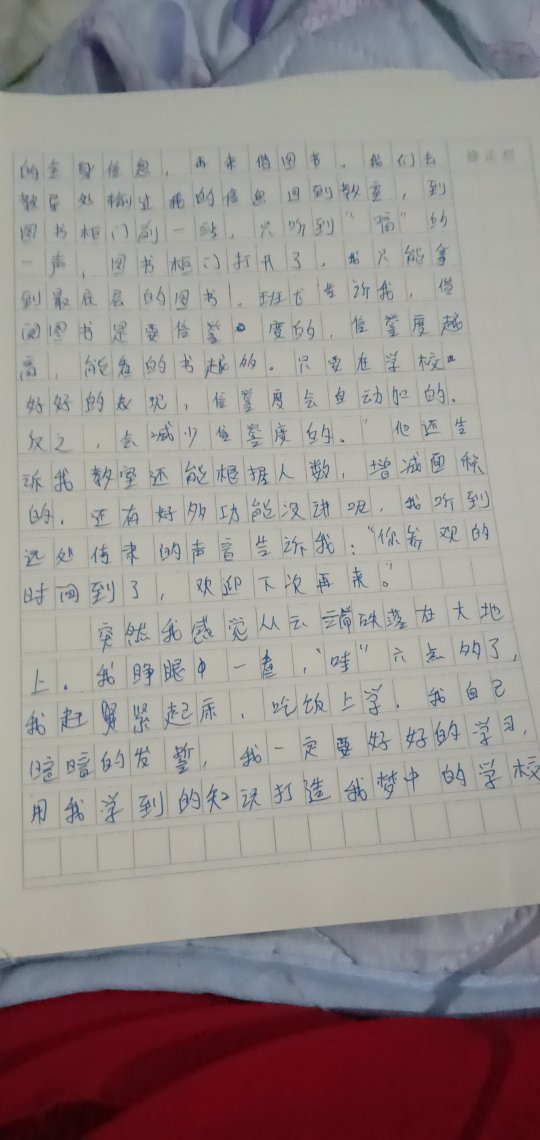 的全身信息，再来借图书。我们去 修正栏
教导处输过我的信息回到教室，到
图书柜门前一站，只听到“嘀”的
一声，图书柜门打开了，我只能拿
到最底层的图书。班长告诉我，借
阅图书是要信誉度的，信誉度越
高，能看的书越多。只要在学校
好好的表现，信誉度会自动加的。
反之，会减少信誉度的。”他还告
诉我教室还能根据人数，增减面积
的，还有好多功能没讲呢，我听到
远处传来的声音告诉我：“你参观的
时间到了，欢迎下次再来。”
突然我感觉从云端跌落在大地
上。我睁眼一看，“哇”六点多了，
我赶紧起床，吃饭上学。我自己
暗暗的发誓，我一定要好好的学习，
用我学到的知识打造我梦中的学校